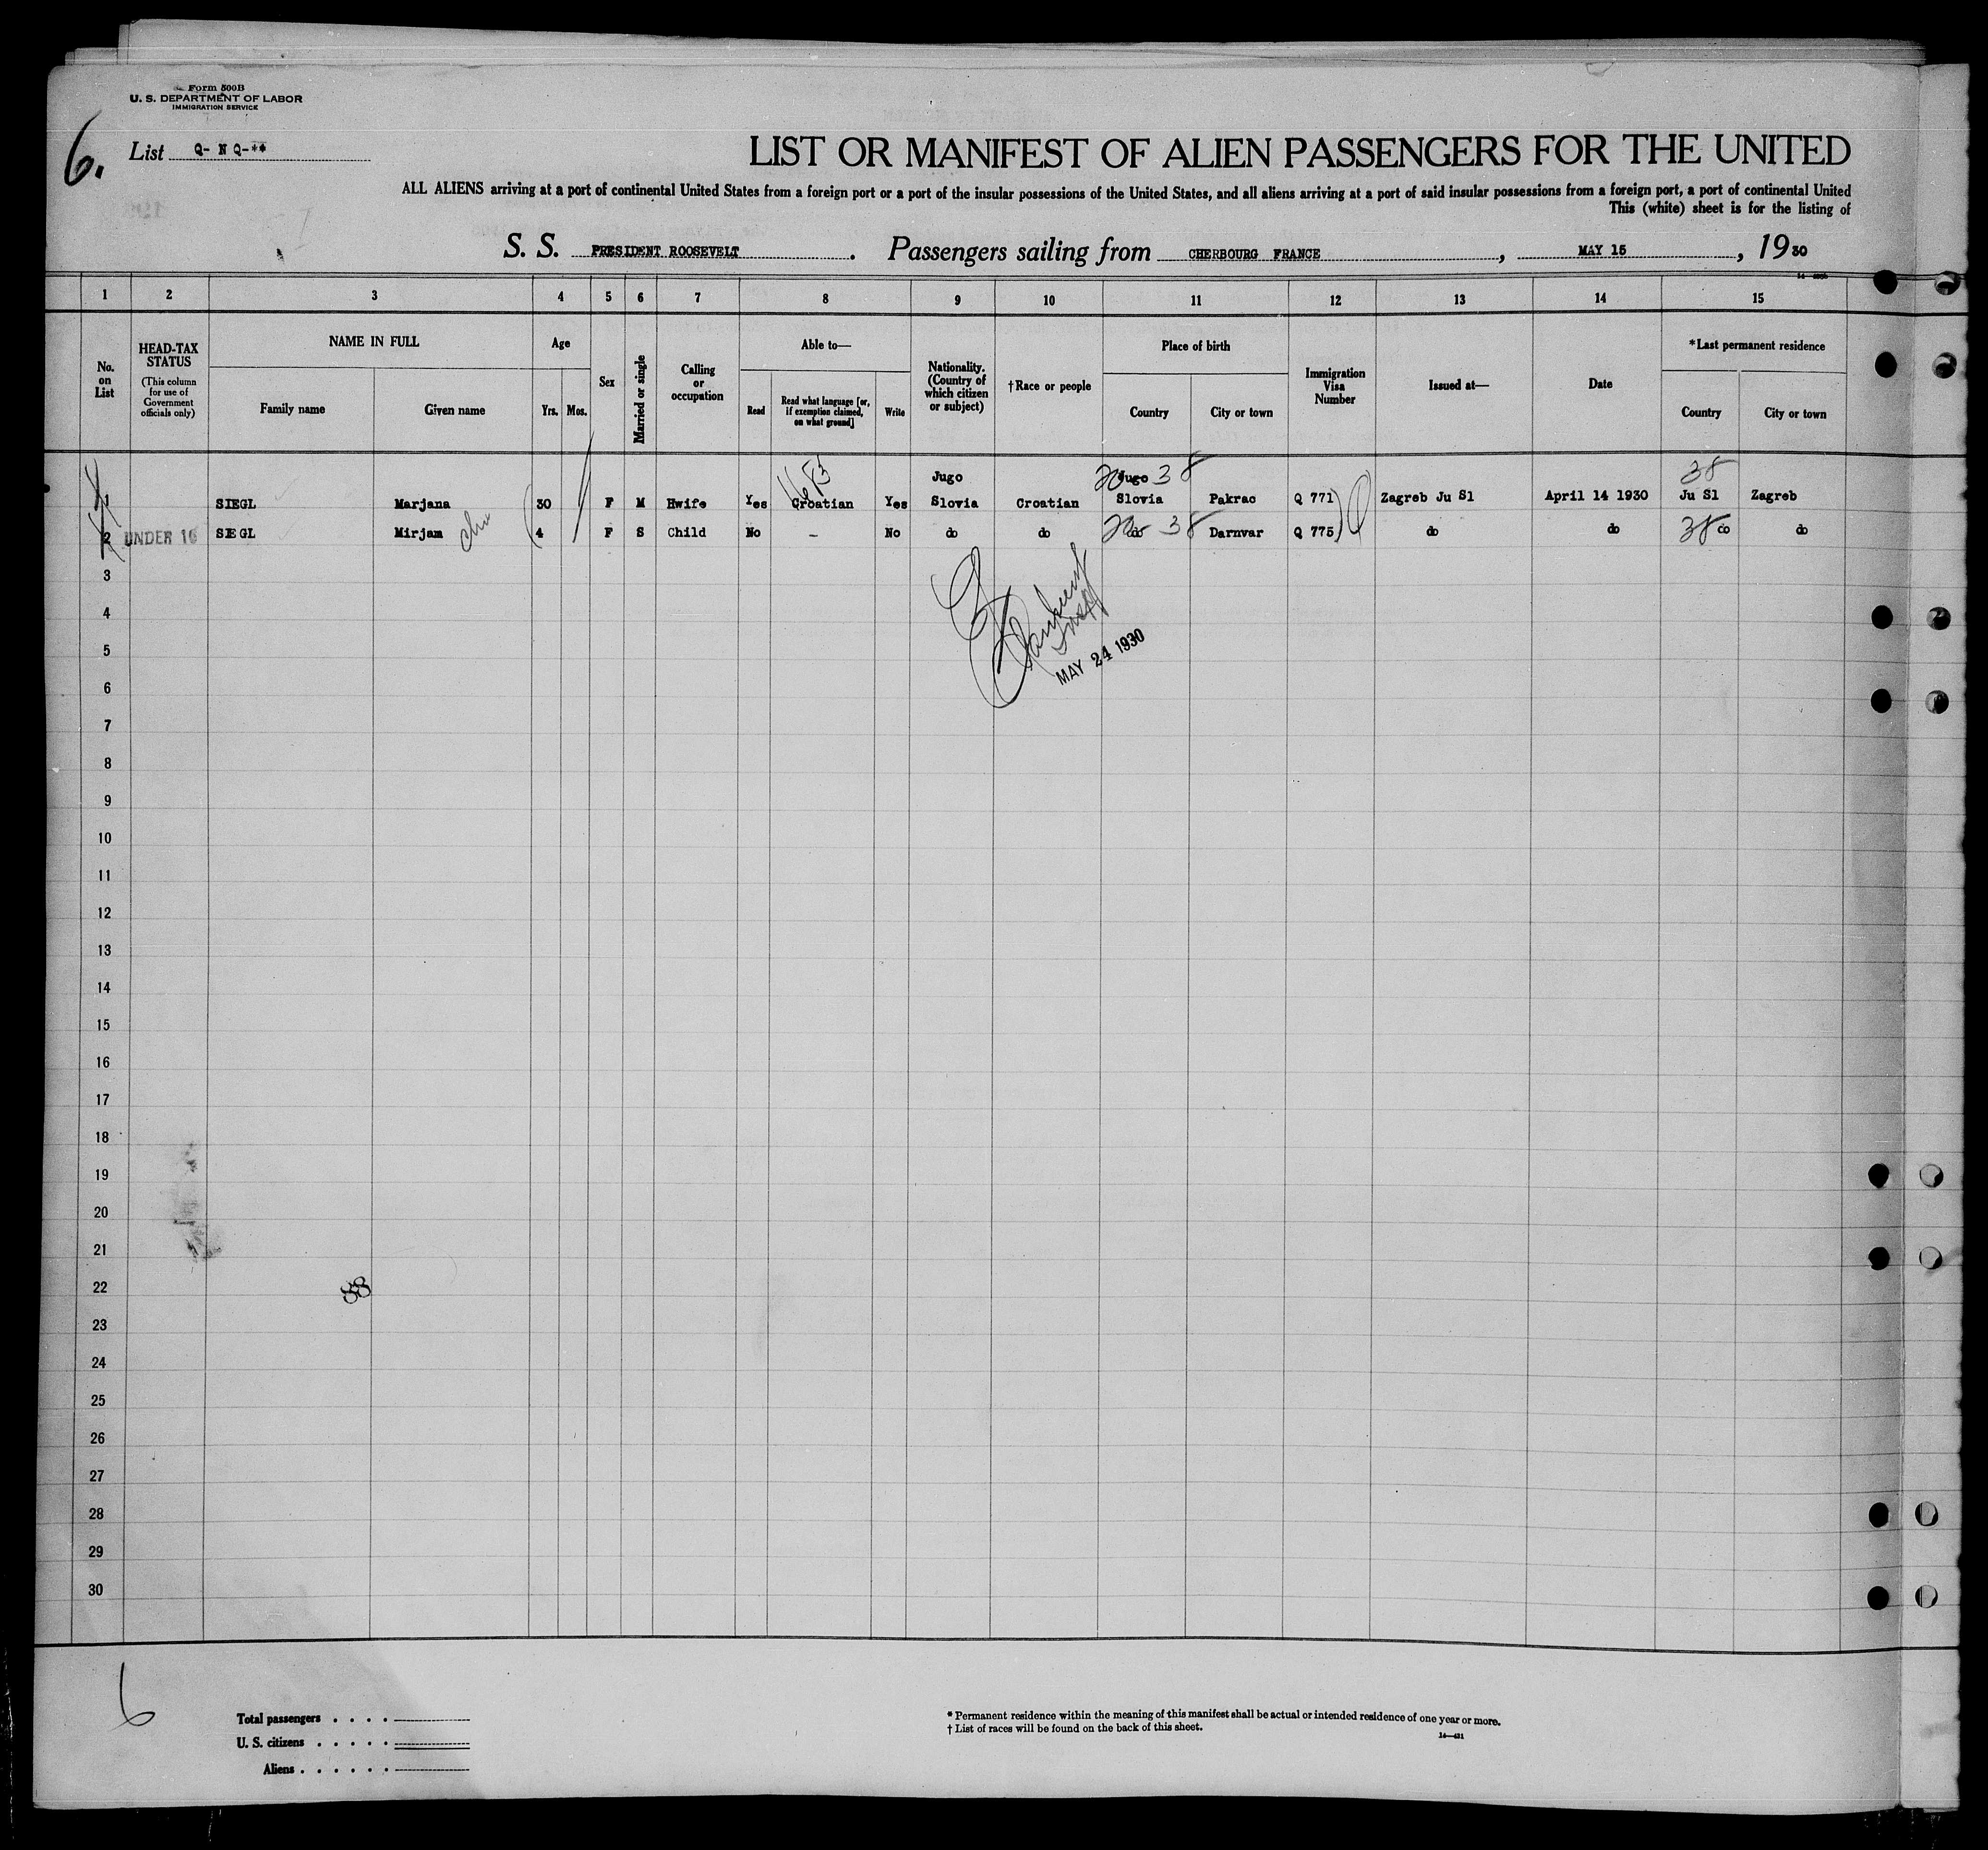 Form 500B
U. S. DEPARTMENT OF LABOR
IMMIGRATION SERVICE
6.
List Q- N Q-**
LIST OR MANIFEST OF ALIEN PASSENGERS FOR THE UNITED
ALL ALIENS arriving at a port of continental United States from a foreign port or a port of the insular possessions of the United States, and all aliens arriving at a port of said insular possessions from a foreign port, a port of continental United
This (white) sheet is for the listing of
S. S. PRESIDENT ROOSEVELT. Passengers sailing from CHERBOURG FRANCE, MAY 15, 1930
1 2 3 4 5 6 7 8 9 10 11 12 13 14 15
No. on List
HEAD-TAX STATUS (This column for use of Government officials only)
NAME IN FULL
Family name
Given name
Age
Yrs. Mos.
Sex
Married or single
Calling or occupation
Able to—
Read
Read what language [or, if exemption claimed, on what ground]
Write
Nationality. (Country of which citizen or subject)
†Race or people
Place of birth
Country
City or town
Immigration Visa Number
Issued at—
Date
*Last permanent residence
Country
City or town
1 SIEGL Marjana 30 F M Hwife Yes Croatian Yes Jugo Slovia Croatian Jugo Slovia 38 Pakrac Q 771 Zagreb Ju Sl April 14 1930 38 Ju Sl Zagreb
2 UNDER 16 SIEGL Mirjam 4 F S Child No - No do do do 38 Darnvar Q 775 do do 38 do do
3
4
5
MAY 24 1930
6
7
8
9
10
11
12
13
14
15
16
17
18
19
20
21
22
88
23
24
25
26
27
28
29
30
6
Total passengers . . . .
U. S. citizens . . . . .
Aliens . . . . . .
* Permanent residence within the meaning of this manifest shall be actual or intended residence of one year or more.
† List of races will be found on the back of this sheet.